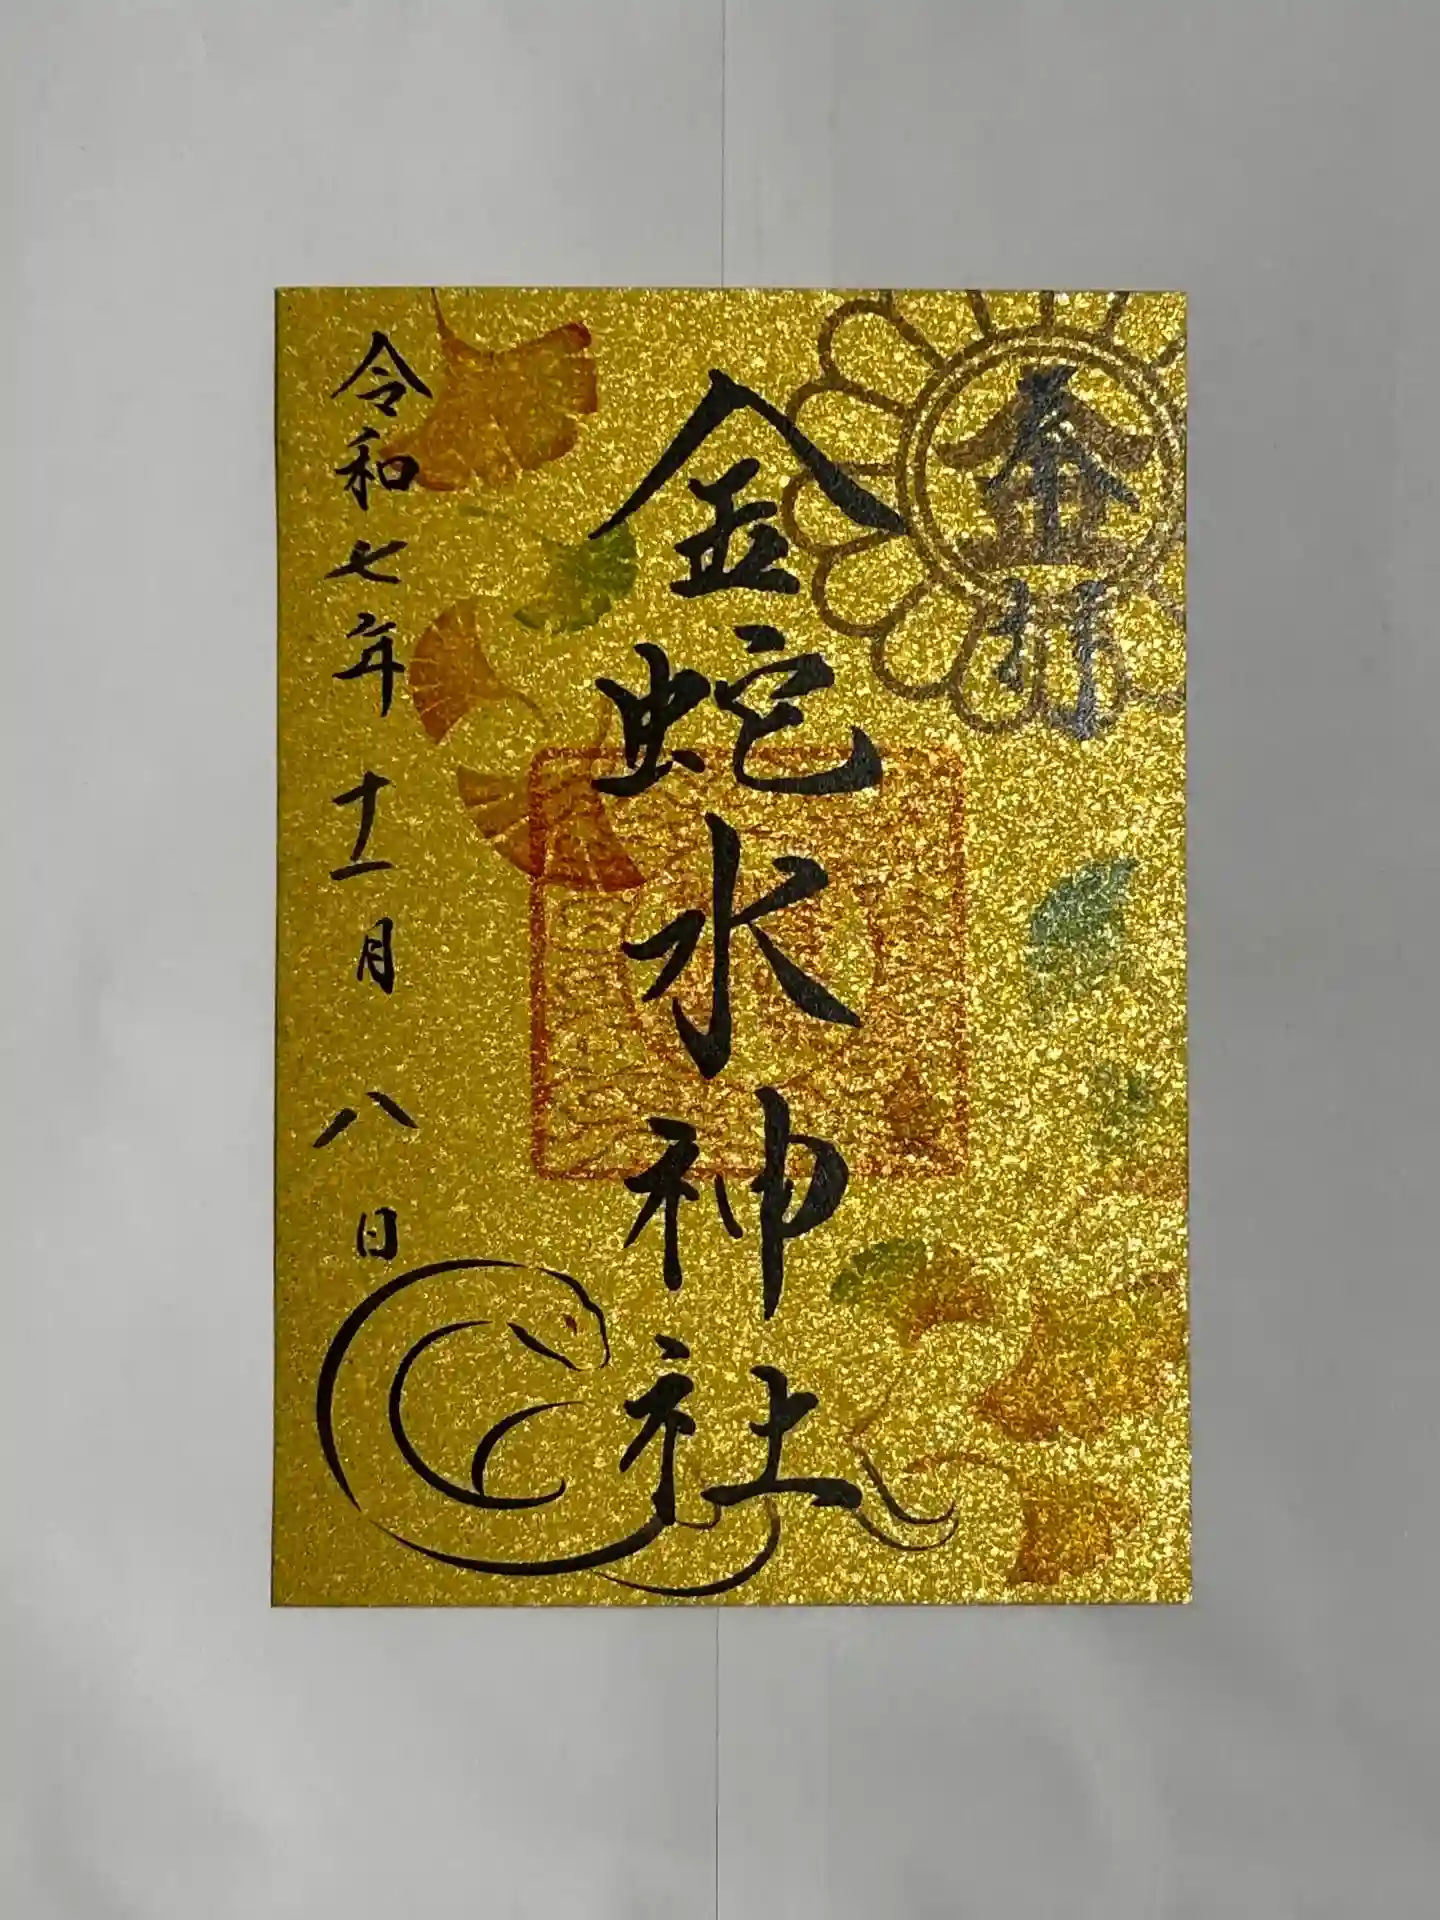 金
奉拝
金蛇水神社
令和七年十一月八日